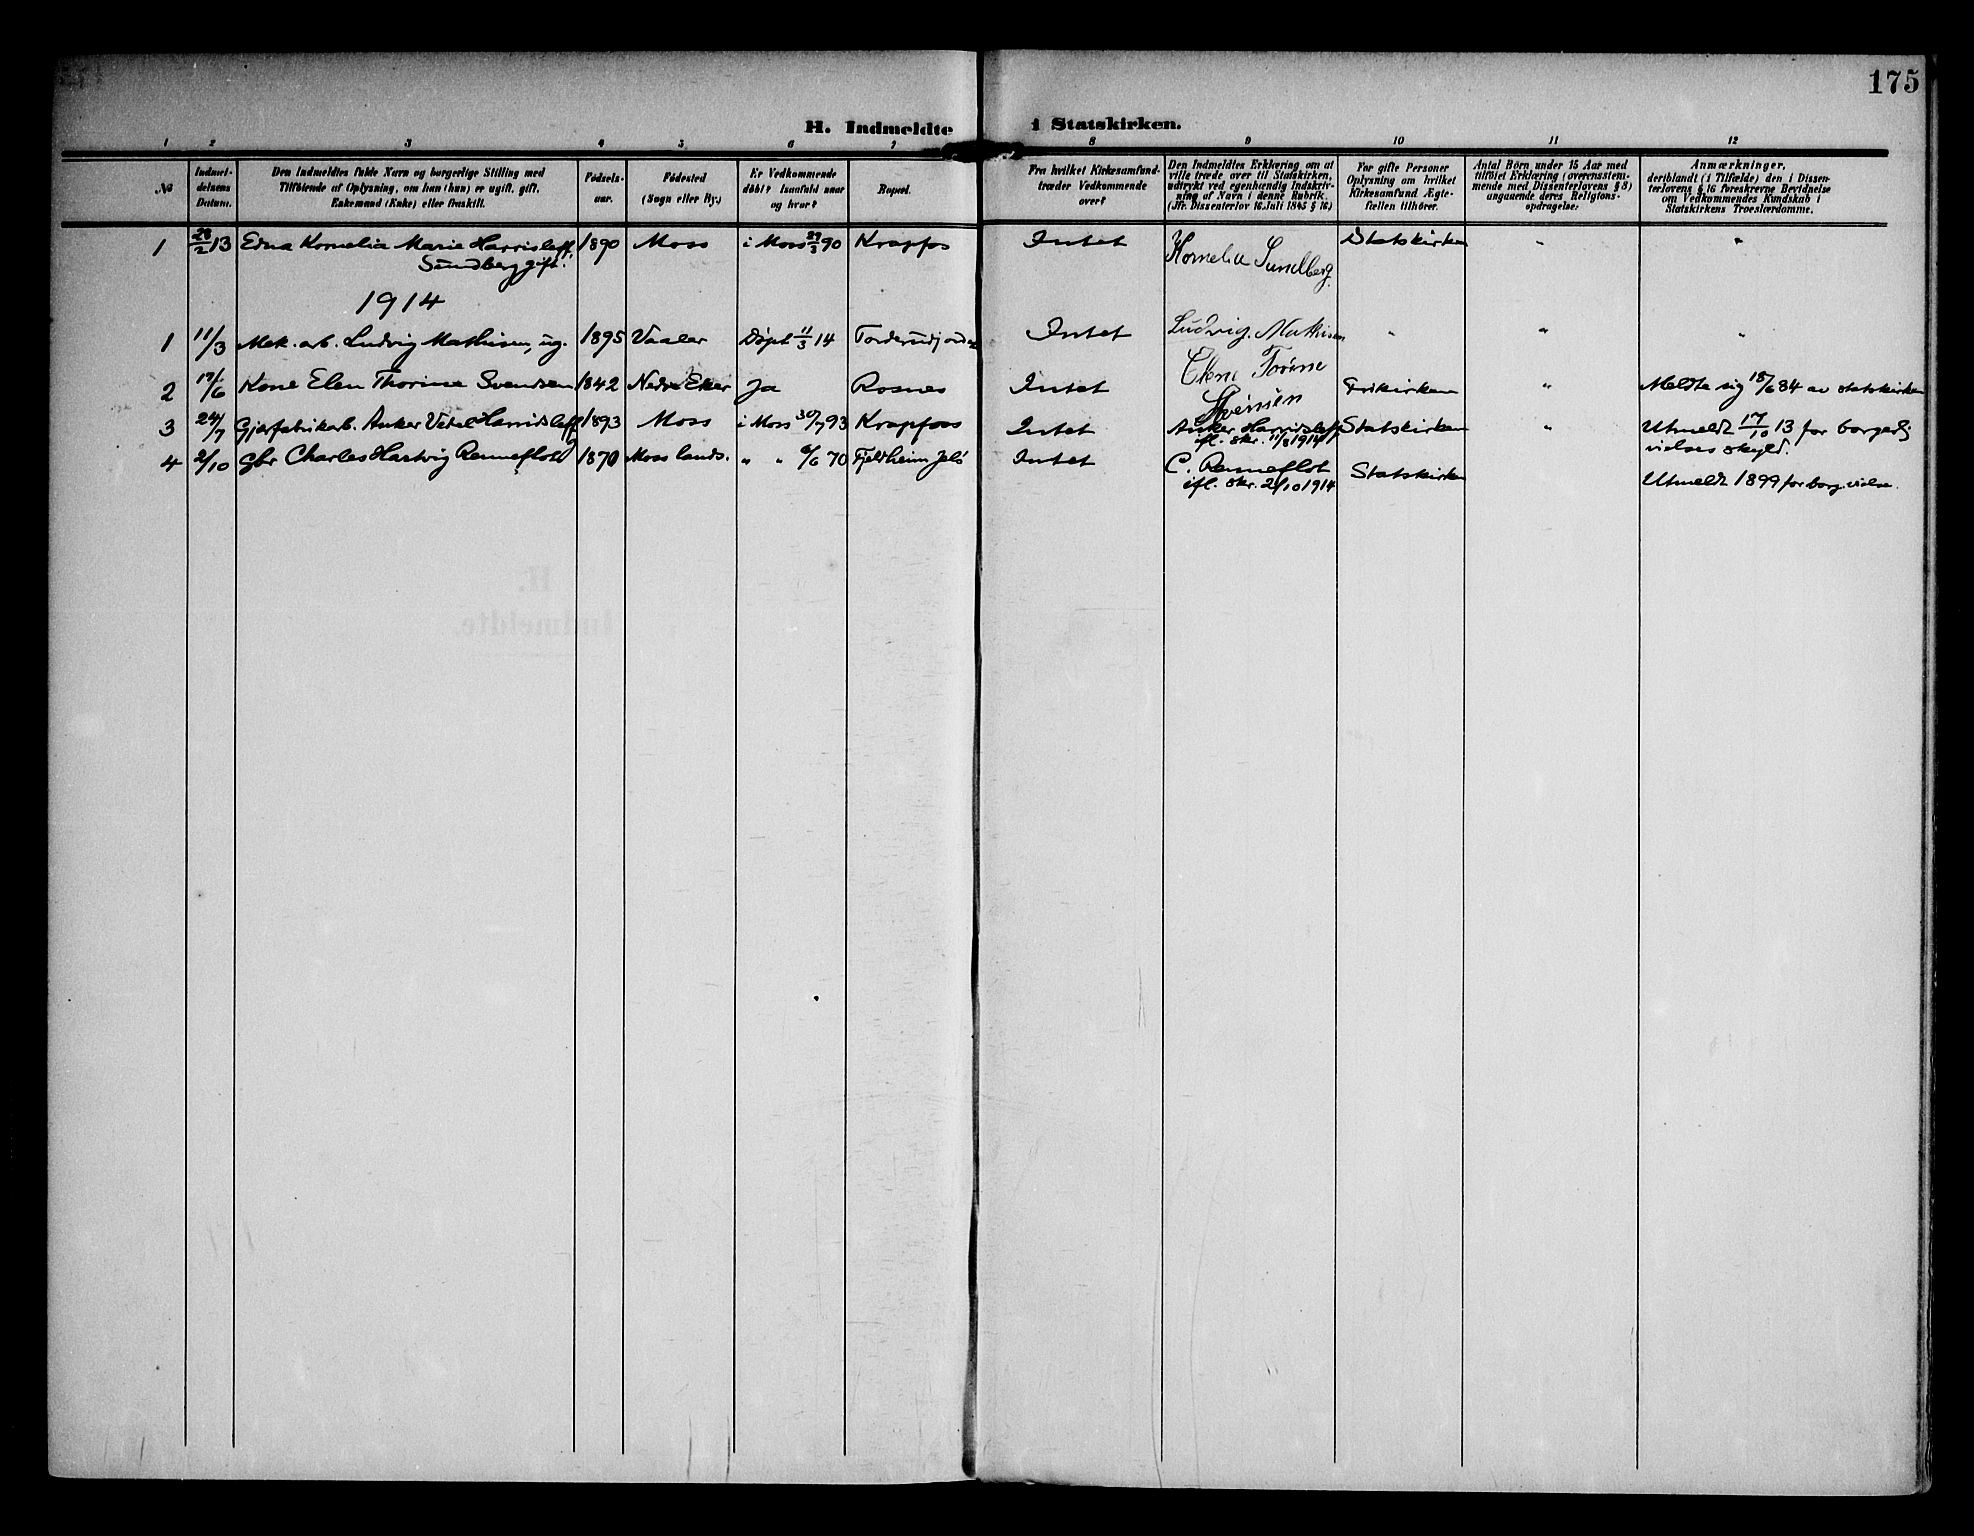 175
H. Indmeldte i Statskirken.
1 2 3 4 5 6 7 8 9 10 11 12
No
Indmel-
delsens
Datum.
Den Indmeldtes fulde Navn og borgerlige Stilling med
Tilföiende af Oplysning, om han (hun) er ugift, gift,
Enkemand (Enke) eller fraskilt.
Födsels-
aar.
Födested
(Sogn eller By.)
Er Vedkommende
döbt? Isaafald naar
og hvor?
Bopæl.
Fra hvilket Kirkesamfund-
træder Vedkommende
over?
Den Indmeldtes Erklæring om at
ville træde over til Statskirken,
udtrykt ved egenhændig Indskriv-
ning af Navn i denne Rubrik.
(Jfr. Dissenterlov 16. Juli 1845 § 16)
For gifte Personer
Oplysning om hvilket
Kirkesamfund Ægte-
fællen tilhörer.
Antal Börn under 15 Aar med
tilföiet Erklæring (overensstem-
mende med Dissenterlovens § 8)
angaaende deres Religions-
opdragelse:
Anmærkninger,
deriblandt (i Tilfælde) den i Dissen-
terlovens § 16 foreskrevne Bevidnelse
om Vedkommendes Kundskab i
Statskirkens Troeslærdomme.
1 28/2 13 Edna Kornelia Marie Harrisleff 1890 Moss i Moss 29/3 90 Krapfos Intet Kornelia Sundberg. Statskirken " "
Sundberg gift.
1914
1 11/3 Mek. arb. Ludvig Mathisen, ug. 1895 Vaaler Döpt 11/3 14 Intet Ludvig. Mathisen " " "
2 17/6 Kone Elen Thorine Svendsen 1842 Nedre Eker Ja Rosnes Intet Elene Torine Frikirken " Meldte sig 18/6 84 av statskirken
3 24/7 Gjærfabrikarb. Anker 1893 Moss i Moss 30/7 93 Krapfoss Intet Anker Harrisleff Statskirken " Utmeldt 17/10 13 for borgerlig
ifl. skr. 11/8 1914 vielses skyld.
4 2/10 Gbr Charles Hartvig Renneflot 1870 Moss lands. " " 6/6 70 Fjeldheim Jelö Intet C. Renneflot Statskirken
ifl. skr. 2/10 1914 Utmeldt 1899 for borg. vielse.
H.
Indmeldte.